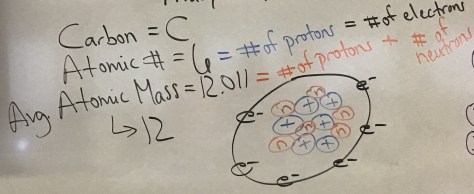 Carbon = C
Atomic # = 6 = # of protons = # of electrons
Avg. Atomic Mass = 12.011 = # of protons + # of neutrons
↳ 12
e⁻
n n
+ +
e⁻ n n
+ + e⁻
n n
+ +
e⁻ e⁻ e⁻